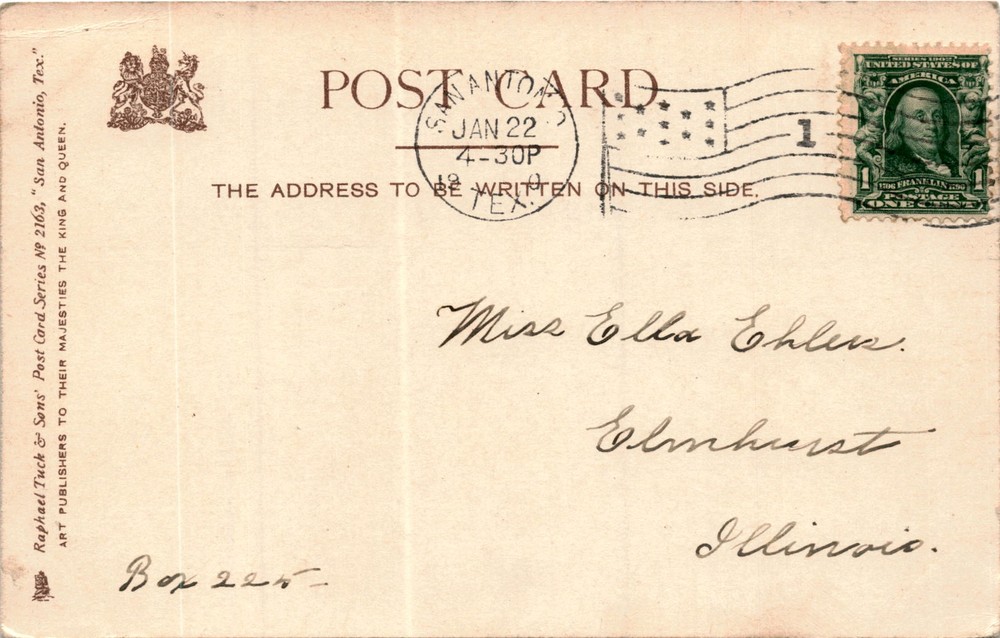 Raphael Tuck & Sons' Post Card Series No 2163, "San Antonio, Tex."
ART PUBLISHERS TO THEIR MAJESTIES THE KING AND QUEEN.
POST CARD
THE ADDRESS TO BE WRITTEN ON THIS SIDE.
SAN ANTONIO
JAN 22
4-30P
TEX.
1
SERIES 1902
UNITED STATES OF
AMERICA
1 1
1706 FRANKLIN 1790
POSTAGE
ONE CENT
Miss Ella Ehlers.
Elmhurst
Illinois.
Box 225